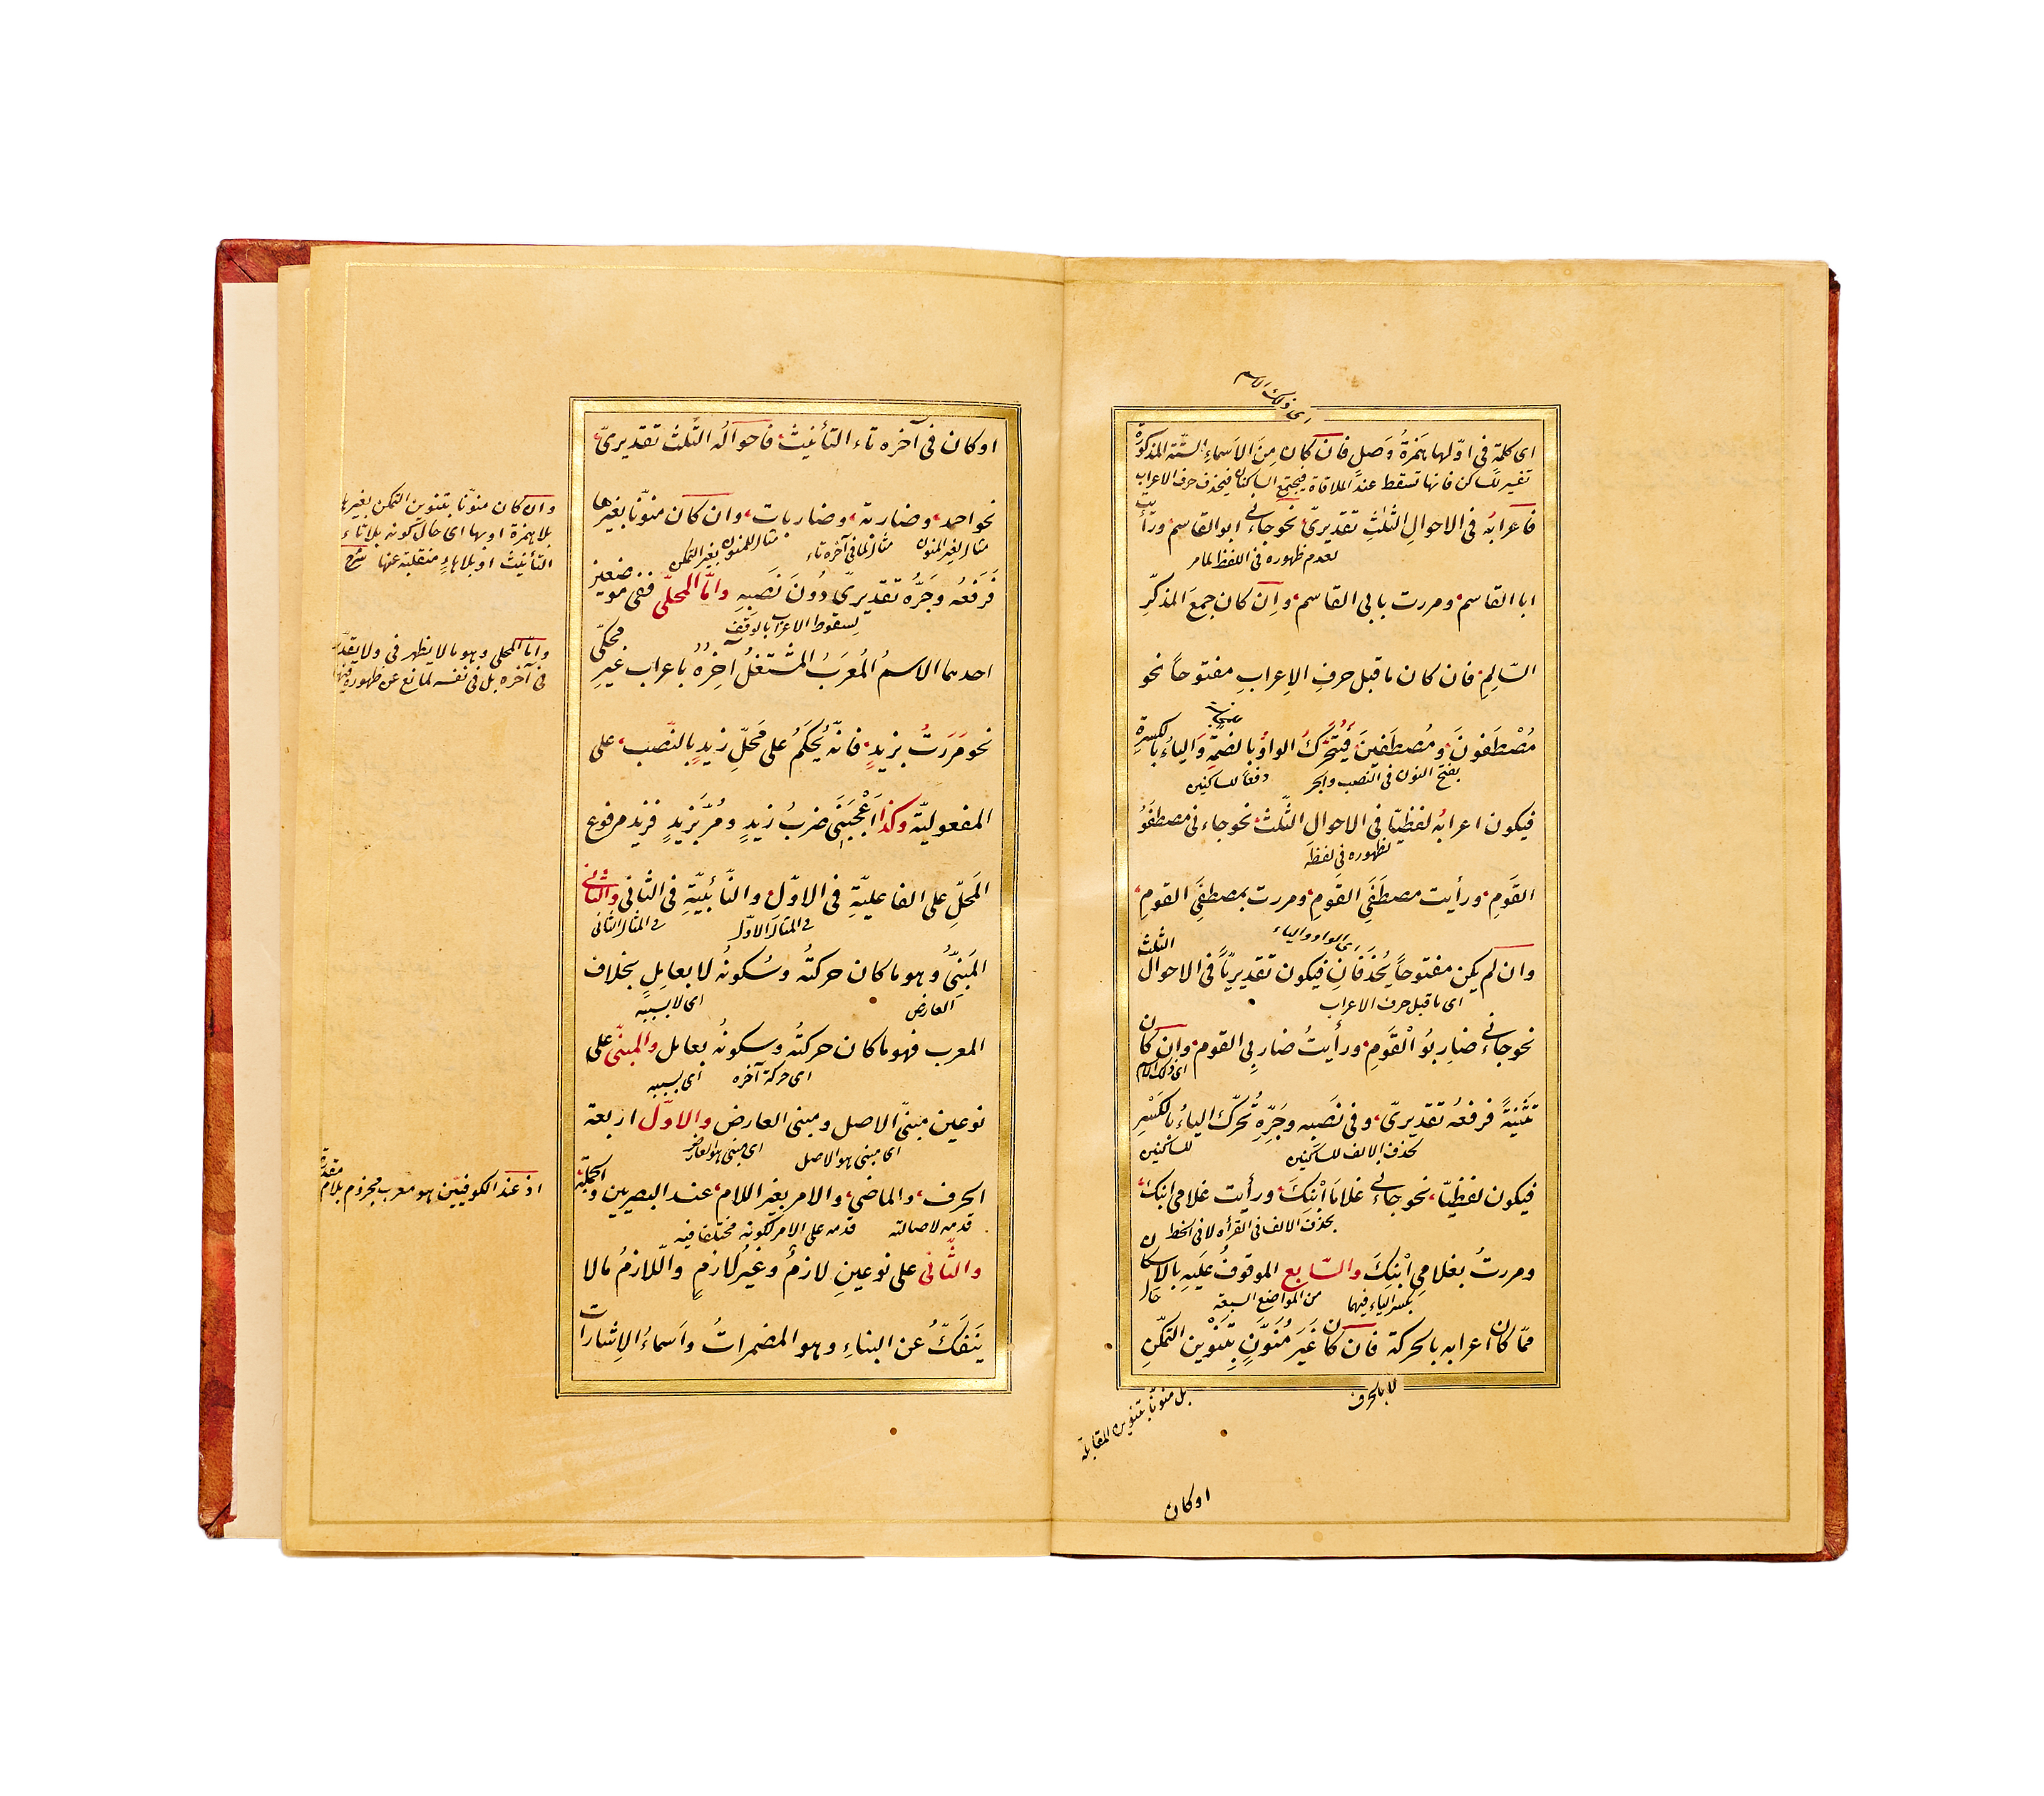 ای ذلک الاسم
ای كلمةٍ فی اوّلها همزةُ وَصلٍ فان كان مِنَ الاَسماءِ السّتّة المذكورة
تفسير لساكن فانها تسقط عند الملاقاة فيجتمع الساكنان فيحذف حرف الاعراب
فاعرابُه فی الاحوالِ الثّلٰثِ تقديریّ نحو جاءنی ابو القاسم ورأيتُ
لعدم ظهوره فی اللفظ لما مر
ابا القاسم ومررت بابی القاسم وان كان جمعَ المذكّرِ
السّالمِ فان كان ما قبل حرفِ الاِعرابِ مفتوحاً نحو
مُصْطَفَونَ ومُصْطَفَينَ فيُتَحَرَّكُ الواوُ بالضمّةِ وَالياءُ بالكسرةِ
بفتح النون فی النصب والجر دفعًا للساكنين
فيكون اعرابُه لفظيّا فی الاحوال الثّلٰث نحو جاءنی مصطفَوُ
لظهوره فی لفظه
القَومِ ورأيت مصطَفَیِ القَومِ ومررت بمصطفَیِ القومِ
ای الواو والياء
وان لم يكن مفتوحاً يُحْذَفانِ فيكون تقديريّاً فی الاحوال الثلث
ای ما قبل حرف الاعراب
نحو جاءنی ضاربُو الْقَومِ ورأيتُ ضاربِی القوم وان كان
ای ذلك الاسم
تَثْنِيَةً فرفعُه تقديریّ وفی نَصَبِه وجَرِّهِ تُحرّك الياءُ بالكَسْرِ
بحذف الالف للساكنين للساكنين
فيكون لفظيّا نحو جاءنی غلامَا اْبْنِكَ ورأيت غلامَی ابنك
بحذف الالف فی القرأة لا فی الخط
ومررتُ بغلامَیِ اْبْنِكَ والسّابع الموقوفُ عليَهِ بالاسكان
بكسر الياء فيهما من المواضع السبعة حال
ممّا كان اعرابه بالحركة فان كان غَيَر مُنَوَّنٍ بِتَنْوين التمكّنِ
لا بالحرف
بل منونًا بتنوين المقابلة
اوكان
او كان فی آخره تاء التأنيث فاحوالُه الثّلٰث تقديریّ
نحو احمد وضاربة وضاربات وان كان منوّنًا بغيرها
مثال لغير المنون مثال لما فی آخره تاء مثال للمنون بغير التمكن
فَرَفعُه وجَرُّه تقديریّ دُونَ نَصَبِهِ وامّا المحلّی ففی موضعين
لسقوط الاعراب بالوقف
احدهما الاسمُ المُعرَبُ المشتغلُ آخِرُهُ باعراب غيرِ محكیّ
نحو مَرَرتُ بزيدٍ فانّه يُحكَمُ علی مَحلِّ زيدٍ بالنّصب علی
المفعوليّه وكذا اَعْجَبَنِی ضربُ زيدٍ ومُرَّ بزيدٍ فزيد مرفوع
المَحلِّ علی الفاعليّةِ فی الاوّل والنّائبيّةِ فی الثانی والثانی
فی المثال الاوّل فی المثال الثانی
المَبنیُّ وهو ما كان حركتُه وسُكونُه لا بعاملٍ بخلاف
العارض ای لا بسببه
المعرب فهو ما كان حركتُه وسكونُه بعامل والمبنّی علی
ای حركة آخره ای بسببه
نوعين مبنیّ الاصل ومبنی العارض والاوّل اربعة
ای مبنی هو الاصل ای مبنی هو العارض
الحرف والماضی والامر بغير اللام عند البصريين والجملة
قدمه لاصالته قدمه علی الامر لكونه مختلفا فيه
والثّانی علی نوعينِ لازمٌ وغيُر لازمٍ واللّازمُ مالا
يَنَفَكُّ عن البناءِ وهو المضمراتُ واَسماءُ الاِشارات
وان كان منوّنا بتنوين التمكن بغيرها
بلا همزة او بها ای حال كونه بلا تاء
التأنيث او بلا هاءٍ منقلبة عنها شرح
وامّا المحلی وهو ما لا يظهر فی ولا يقدّر
فی آخره بل فی نفسه لمانع عن ظهوره فيها
اذ عند الكوفيّين هو معرب مجزوم بلام مقدرة